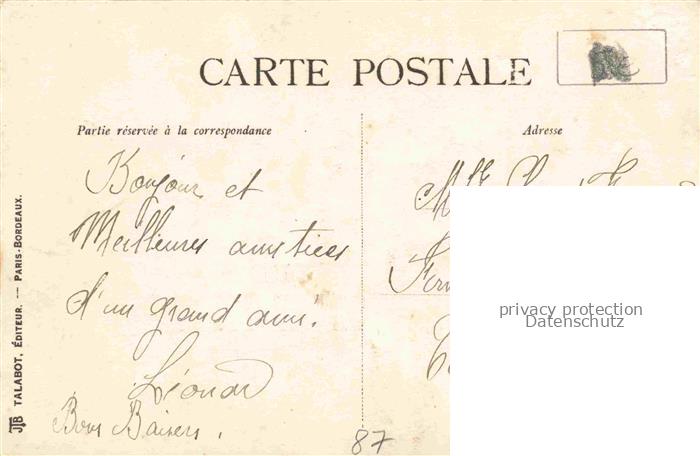 CARTE POSTALE
Partie réservée à la correspondance
Adresse
Bonjour et
Meilleures amitiées
d'un grand ami.
Léonard
Bons Baisers.
Mlle
87
TALABOT, ÉDITEUR. — PARIS-BORDEAUX.
JTB
privacy protection
Datenschutz